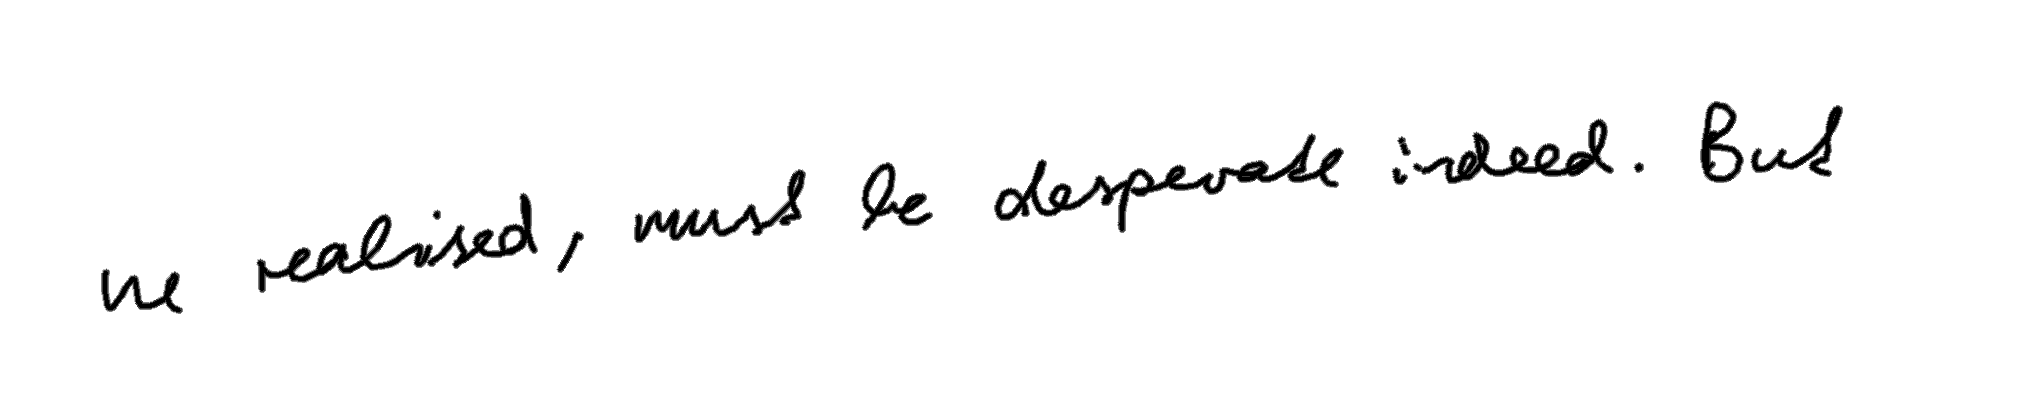 we realised, must be desperate indeed. But